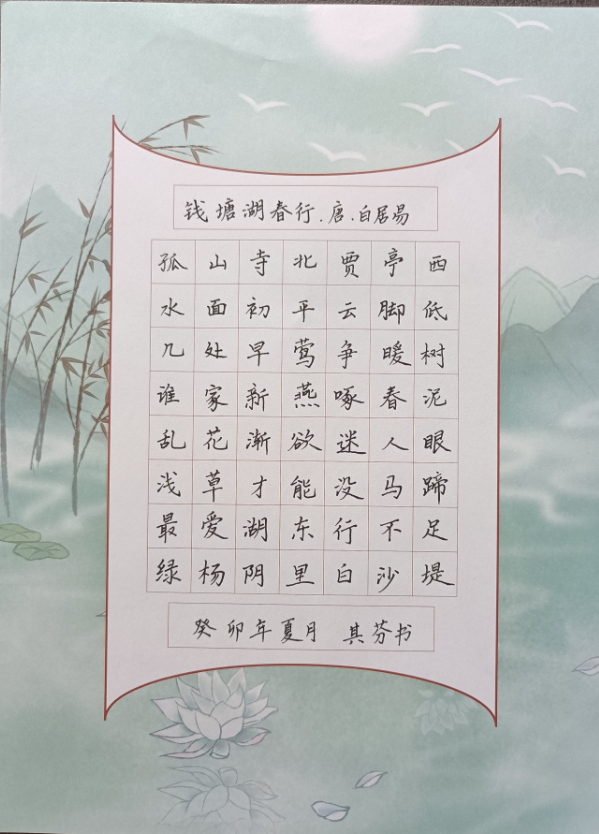 钱塘湖春行.唐.白居易
孤山寺北贾亭西
水面初平云脚低
几处早莺争暖树
谁家新燕啄春泥
乱花渐欲迷人眼
浅草才能没马蹄
最爱湖东行不足
绿杨阴里白沙堤
癸卯年夏月 其芬书